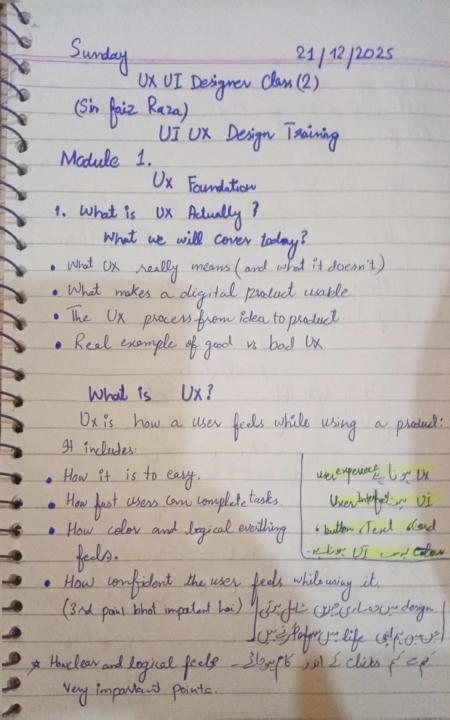 Sunday 21/12/2025
UX UI Designer Class (2)
(Sir Faiz Raza)
UI UX Design Training
Module 1.
Ux Foundation
1. What is UX Actually?
What we will cover today?
• What UX really means (and what it doesn't)
• What makes a digital product usable
• The UX process from idea to product
• Real example of good vs bad UX
What is UX?
Ux is how a user feels while using a product:
It includes:
• How it is to easy.
• How fast users can complete tasks.
• How color and logical everthing
feels.
UX ہوتا ہے user experience
UI میں
button, Text
colour UI ہوتا ہے
• How confident the user feels while using it.
(3rd point bhot important hai)
design میں
life میں
☆ How clear and logical feels - کم سے کم clicks کے اندر کام ہو جائے
Very important points.